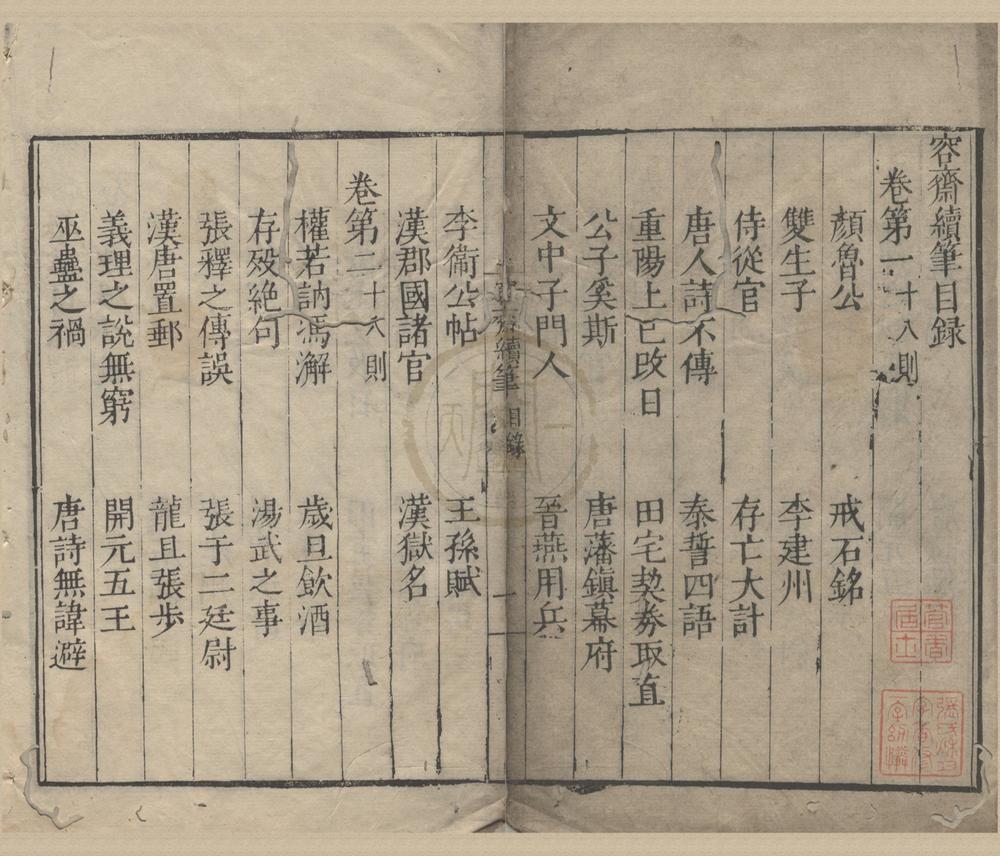 容齋續筆目録
卷第一十八則
顏魯公 戒石銘
雙生子 李建州
侍從官 存亡大計
唐人詩不傳 泰誓四語
重陽上巳改日 田宅契券取直
公子奚斯 唐藩鎭幕府
文中子門人 晉燕用兵
齋續筆 目錄 一
李衞公帖 王孫賦
漢郡國諸官 漢獄名
卷第二十八則
權若訥馮澥 歲旦飲酒
存歿絶句 湯武之事
張釋之傳誤 張于二廷尉
漢唐置郵 龍且張步
義理之説無窮 開元五王
巫蠱之禍 唐詩無諱避